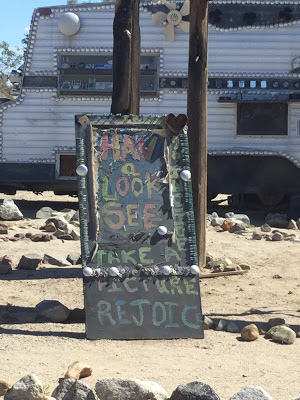 HAV
a
LOOK
SEE
TAKE A
PICTURE
REJOIC